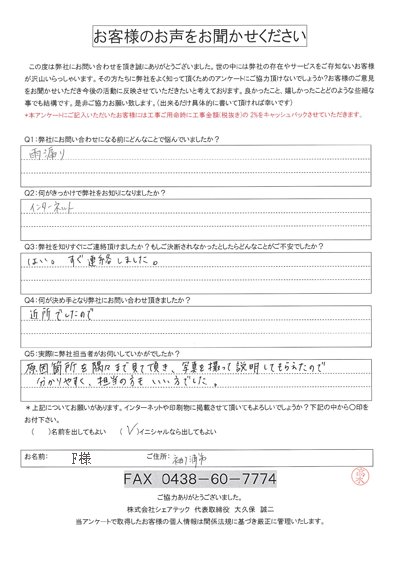 お客様のお声をお聞かせください
この度は弊社にお問い合わせを頂き誠にありがとうございました。世の中には弊社の存在やサービスをご存知ないお客様
が沢山いらっしゃいます。その方たちに弊社をよく知って頂くためのアンケートにご協力頂けないでしょうか?お客様のご意見
をお聞かせいただき今後の活動に反映させていただきたいと考えております。良かったこと、嬉しかったことどのような些細な
事でも結構です。是非ご協力お願い致します。(出来るだけ具体的に書いて頂ければ幸いです)
*本アンケートにご記入いただいたお客様には工事ご用命時に工事金額(税抜き)の 2%をキャッシュバックさせていただきます。
Q1:弊社にお問い合わせになる前にどんなことで悩んでいましたか?
雨漏り
Q2:何がきっかけで弊社をお知りになりましたか?
インターネット
Q3:弊社を知りすぐにご連絡頂けましたか?もしご決断されなかったとしたらどんなことがご不安でしたか?
はい。すぐ連絡しました。
Q4:何が決め手となり弊社にお問い合わせ頂きましたか?
近所でしたので
Q5:実際に弊社担当者がお伺いしていかがでしたか?
原因箇所を隅々まで見て頂き、写真を撮って説明してもらえたので
分かりやすく、担当の方もいい方でした。
*上記についてお願いがあります。インターネットや印刷物に掲載させて頂いてもよろしいでしょうか?下記の中から〇印を
お付下さい。
( )名前を出してもよい (✓)イニシャルなら出してもよい
お名前: F様 ご住所: 袖ケ浦市
FAX 0438-60-7774
ご協力ありがとうございました。
株式会社シェアテック 代表取締役 大久保 誠二
当アンケートで取得したお客様の個人情報は関係法規に基づき厳正に管理いたします。